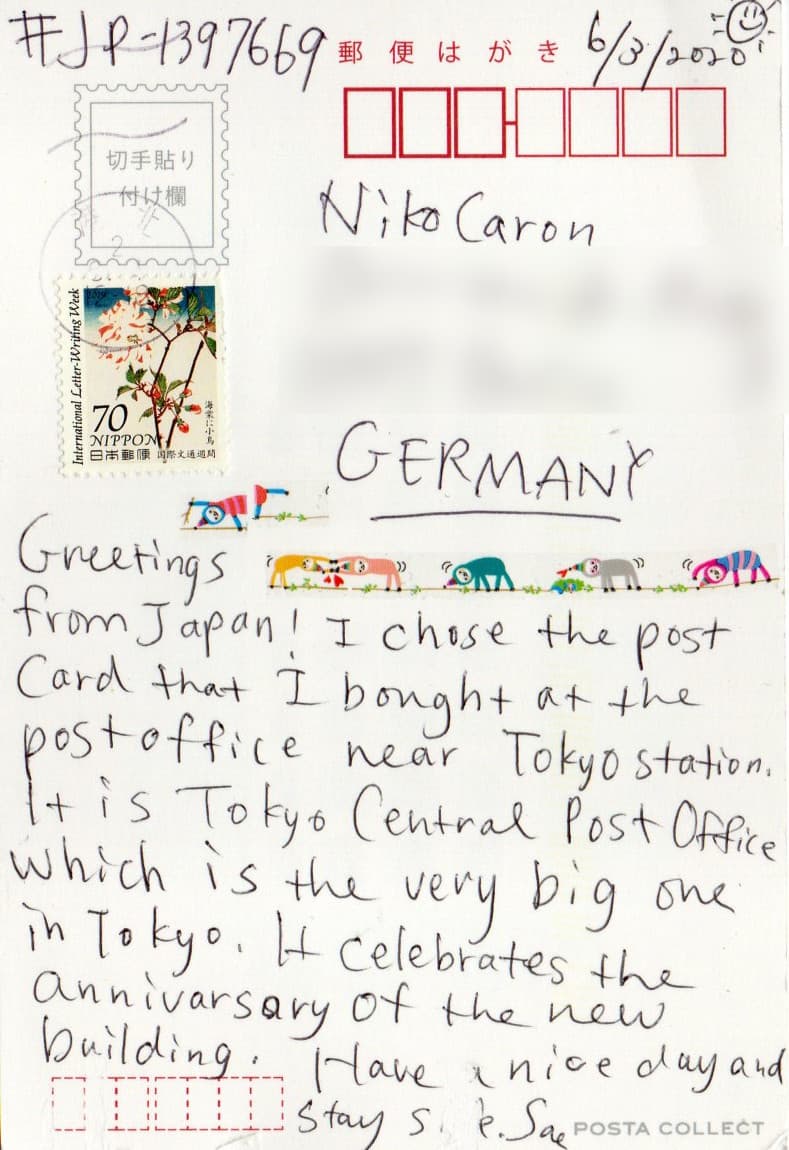 #JP-1397669
郵便はがき
6/3/2020
切手貼り
付け欄
Niko Caron
International Letter-Writing Week
2019
70
NIPPON
日本郵便
国際文通週間
海棠に小鳥
GERMANY
Greetings
from Japan! I chose the post
Card that I bought at the
post office near Tokyo station.
It is Tokyo Central Post Office
which is the very big one
in Tokyo. It celebrates the
annivarsary of the new
building. Have a nice day and
stay Sae
POSTA COLLECT